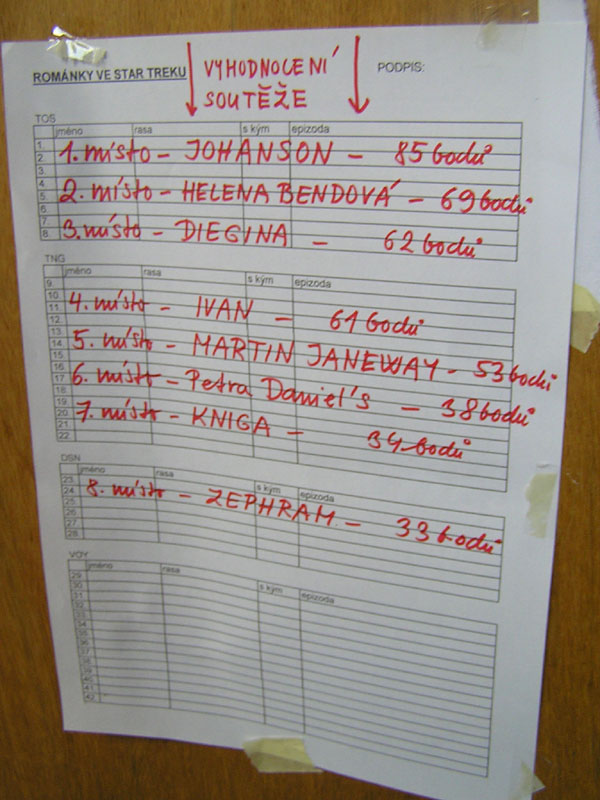 ROMÁNKY VE STAR TREKU VYHODNOCENÍ SOUTĚŽE PODPIS:
TOS
jméno rasa s kým epizoda
1.
2. 1. místo - JOHANSON - 85 bodů
3.
4.
5. 2. místo - HELENA BENDOVÁ - 69 bodů
6.
7.
8. 3. místo - DIEGINA - 62 bodů
TNG
jméno rasa s kým epizoda
9.
10.
11. 4. místo - IVAN - 61 bodů
12.
13.
14. 5. místo - MARTIN JANEWAY - 53 bodů
15.
16.
17. 6. místo - Petra Daniel's - 38 bodů
18.
19.
20. 7. místo - KNIGA - 34 bodů
21.
22.
DSN
jméno rasa s kým epizoda
23.
24. 8. místo - ZEPHRAM - 33 bodů
25.
26.
27.
28.
VOY
jméno rasa s kým epizoda
29.
30.
31.
32.
33.
34.
35.
36.
37.
38.
39.
40.
41.
42.